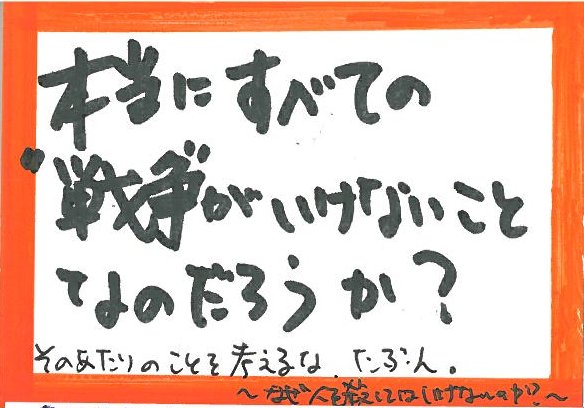 本当にすべての
"戦争"がいけないこと
なのだろうか?
そのあたりのことを考えるな、たぶん。
〜なぜ人を殺してはいけないのか?〜